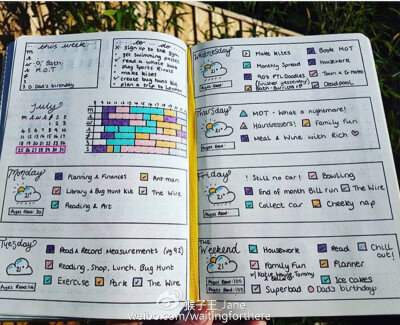 this week
m
o' Bath
M.O.T
Dads birthday
to do
sign up to the Gym
get swimming passes
read a whole book
Play Sports Rivals
make kites
create bug hunt
plan a trip to London
July
Monday
Planning & Finances
Antman
Library & Bug Hunt Kit
The Wire
Reading & Art
Pages Read: 30
Tuesday
Read & Record Measurements (pg 92)
Reading, Shop, Lunch, Bug Hunt
Exercise
Park
The Wire
Pages Read:
Wednesday
Make Kites
Book MOT
Monthly Spread
Housework
90s PTL Doodles
(finished yesterday)
Town
Bath
Deadpool
Pages Read:
Thursday
MOT - What a nightmare!
Hairdressers!
Family Fun
Meal & Wine with Rich
Friday
! Still no car!
Bowling
End of month Bill run
The Wire
Collect car
Cheeky nap
Pages Read:
The
Weekend
Housework
Read
Chill
out!
Family Fun
Planner
w/ Katie
Tommy
Ice Cakes
Superbad
Dads birthday
Pages Read:
Pages Read:
猴子王_Jane
weibo.com/waitingforthere